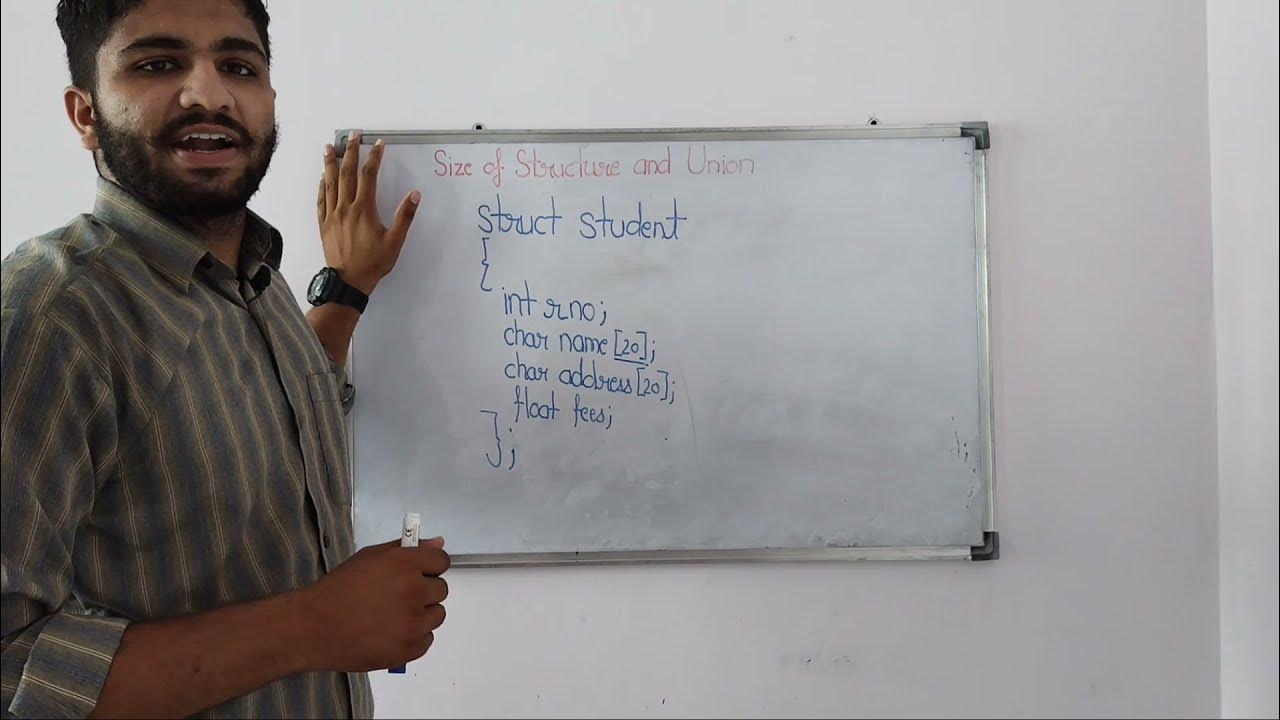 Size of Structure and Union
struct student
{
int rno;
char name [20];
char address [20];
float fees;
};